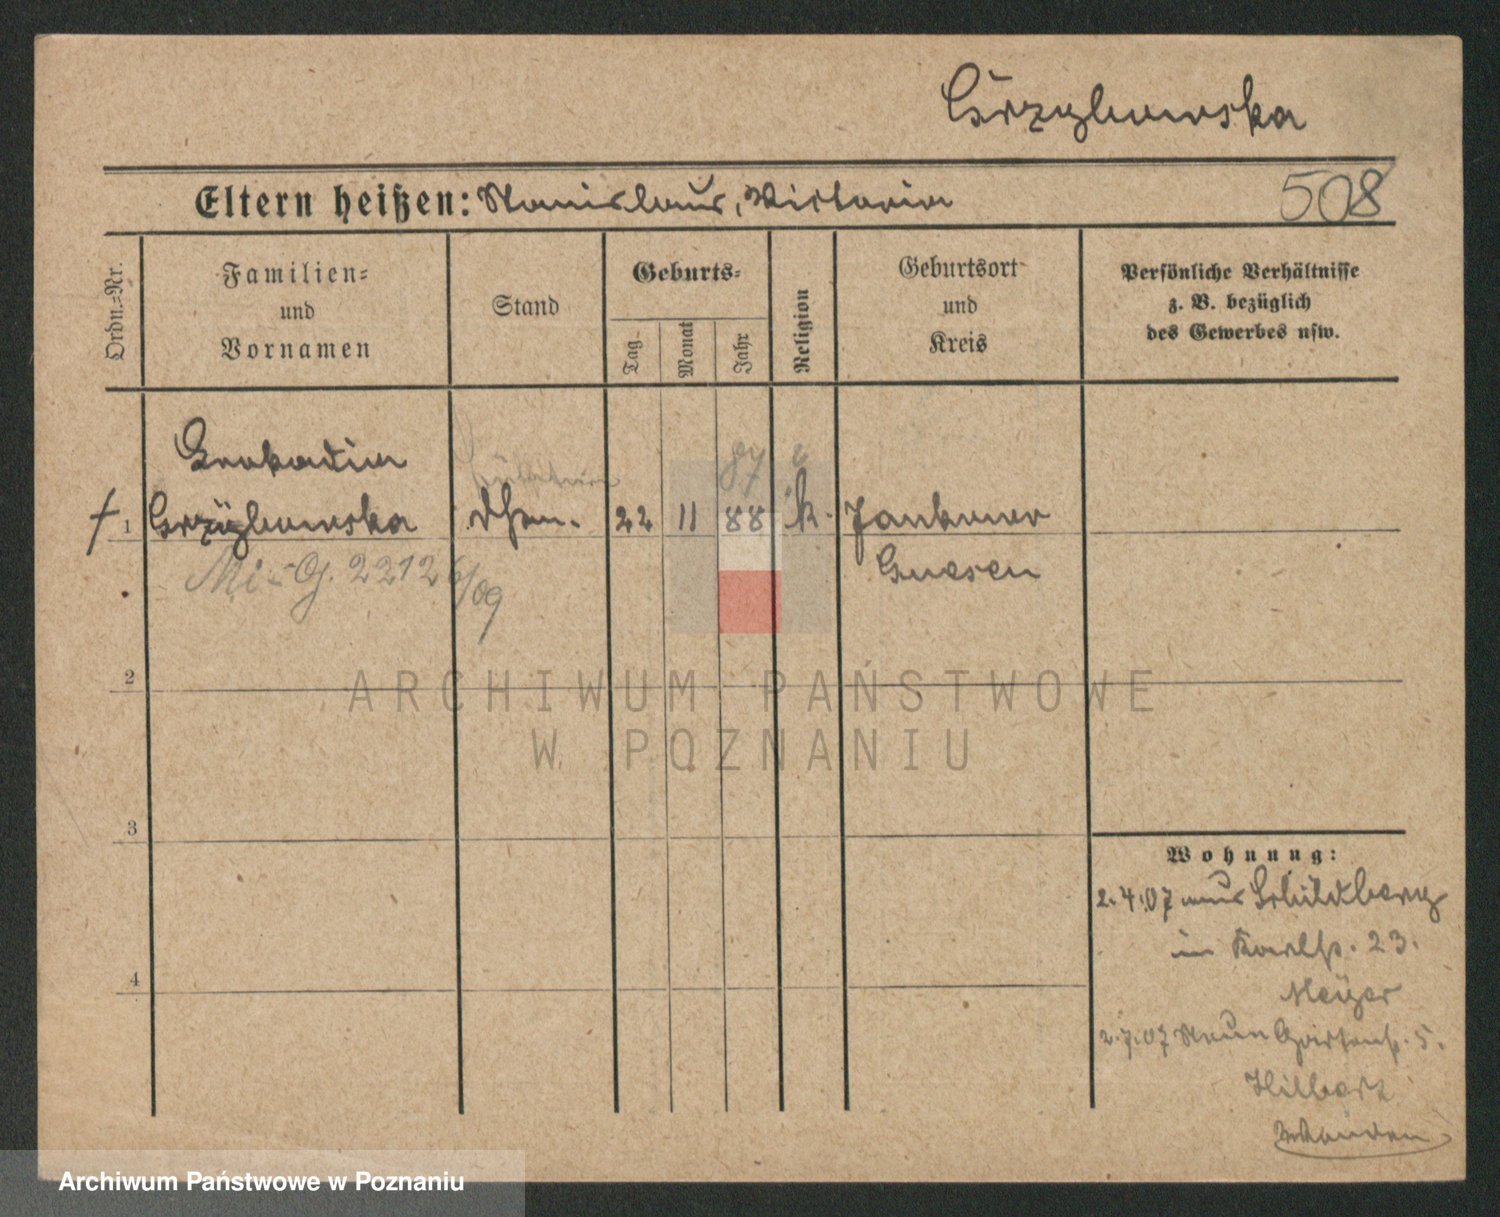 Grzybowska
Eltern heißen: Stanislaus, Victoria
508
Ordn.=Nr.
Familien=
und
Vornamen
Stand
Geburts=
Tag
Monat
Jahr
Religion
Geburtsort
und
Kreis
Persönliche Verhältnisse
z. B. bezüglich
des Gewerbes usw.
Leokadia
87
1 Grzybowska 22 11 88 k.
Gnesen
Mi-G. 2212 6/09
2
ARCHIWUM PAŃSTWOWE
W POZNANIU
3
Wohnung:
2.4.07 aus Schildberg
in Karlstr. 23.
Meyer
4
2.7.07 Neue Gartenstr. 5.
Archiwum Państwowe w Poznaniu